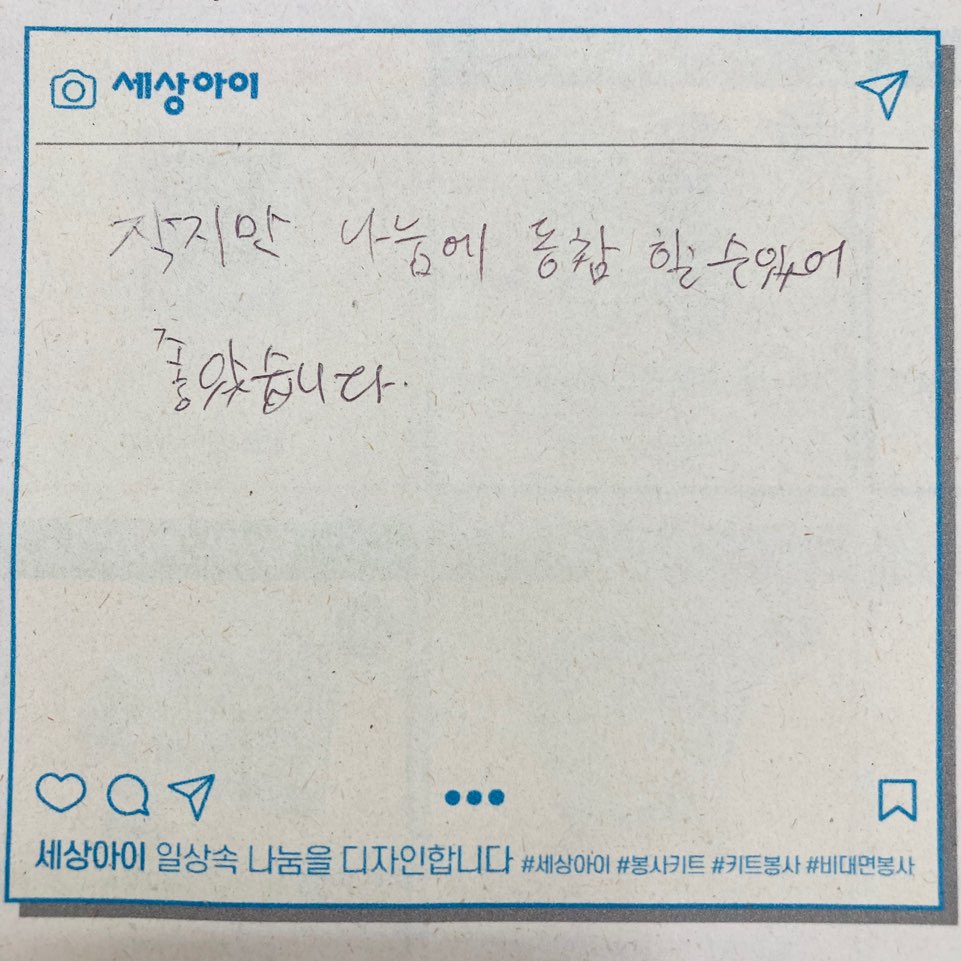 세상아이
작지만 나눔에 동참 할 수 있어
좋았습니다.
세상아이 일상속 나눔을 디자인합니다 #세상아이 #봉사키트 #키트봉사 #비대면봉사